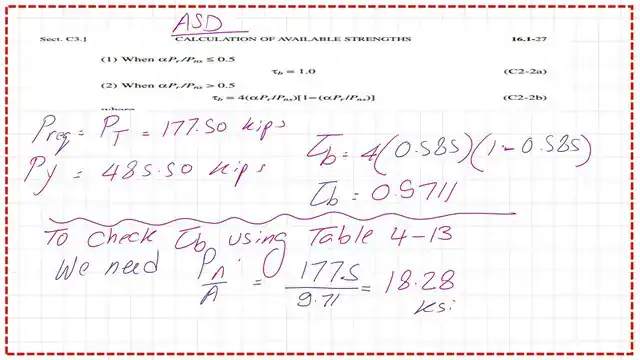 ASD
Sect. C3.] CALCULATION OF AVAILABLE STRENGTHS 16.1-27
(1) When αPr/Pns ≤ 0.5
τb = 1.0 (C2-2a)
(2) When αPr/Pns > 0.5
τb = 4(αPr/Pns)[1−(αPr/Pns)] (C2-2b)
where
Preq = PT = 177.50 kips
Py = 485.50 kips
τb = 4(0.585)(1-0.585)
τb = 0.9711
To check τb using Table 4-13
We need Pn/A = 177.5/9.71 = 18.28 ksi